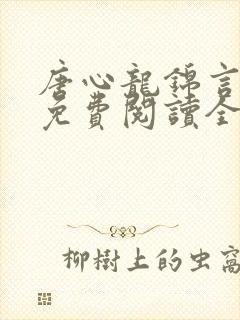 唐心龍錦言
免費閱讀全
柳樹上的虫窩